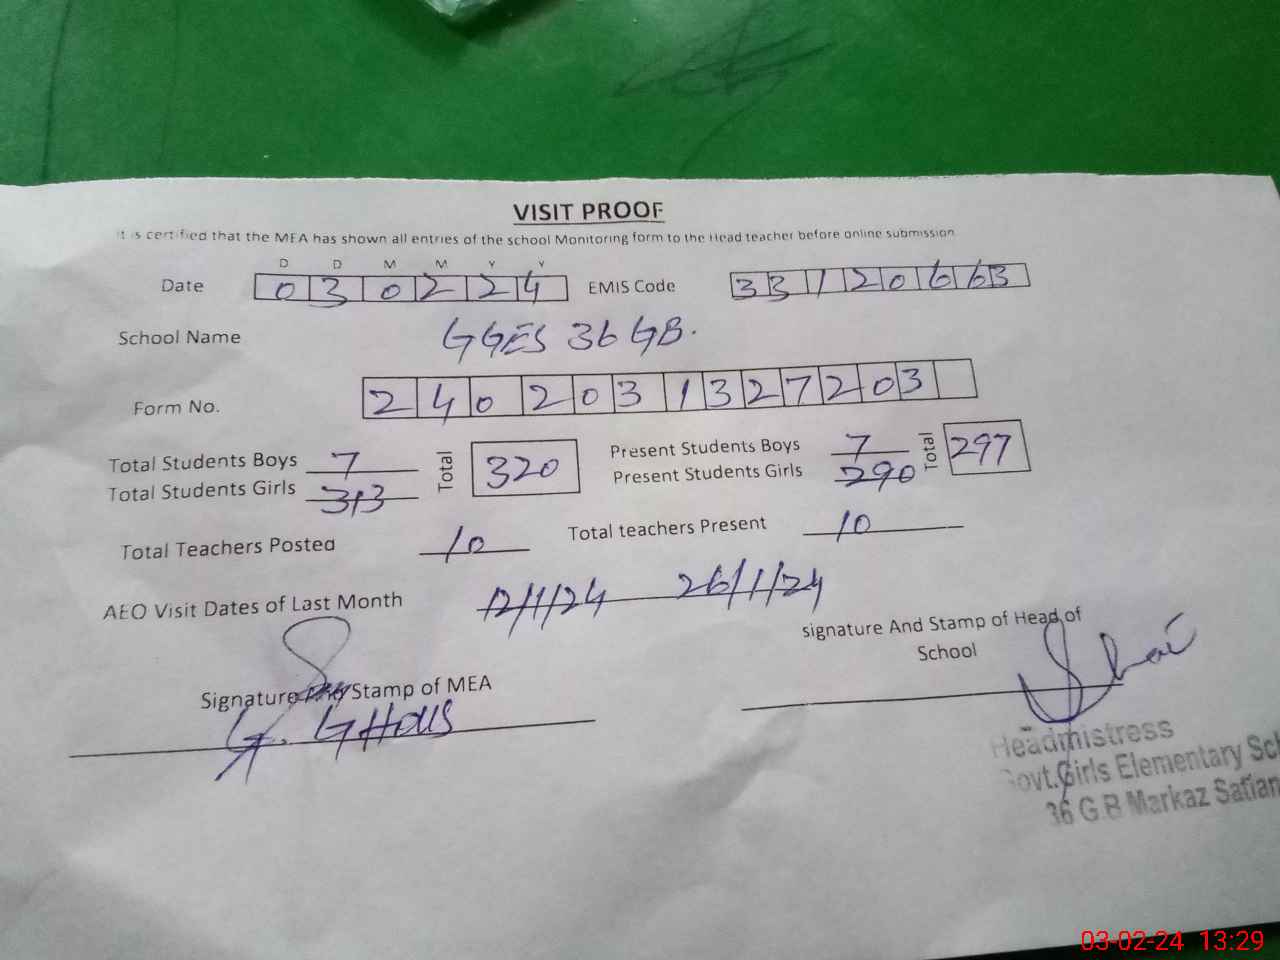 VISIT PROOF
It is certified that the MEA has shown all entries of the school Monitoring form to the Head teacher before online submission
D D M M Y Y
Date 030224 EMIS Code 33120663
School Name GGES 36 GB.
Form No. 2402031327203
Total Students Boys 7 Total 320 Present Students Boys 7 Total 297
Total Students Girls 313 Present Students Girls 290
Total Teachers Posted 10 Total teachers Present 10
AEO Visit Dates of Last Month 12/1/24 26/1/24
signature And Stamp of Head of
School
Signature And Stamp of MEA
G. GHOUS
Headmistress
Govt.Girls Elementary Sch
36 G.B Markaz Satian
03-02-24 13:29